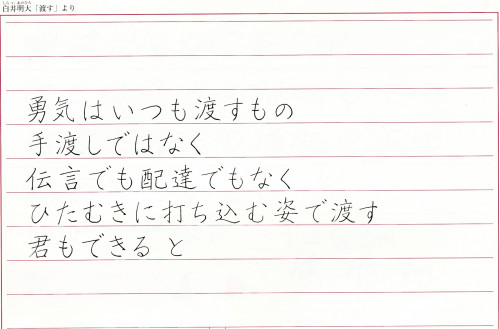 白井明大「渡す」より
勇気はいつも渡すもの
手渡しではなく
伝言でも配達でもなく
ひたむきに打ち込む姿で渡す
君もできる と